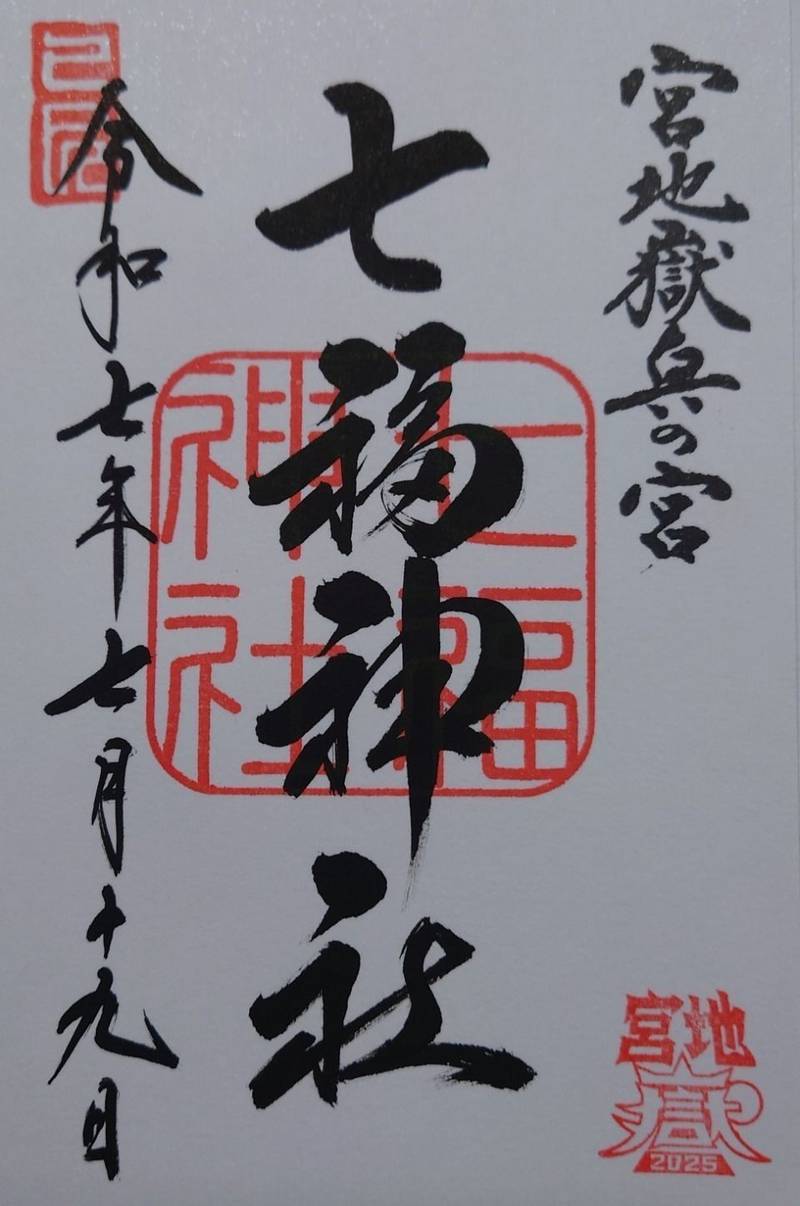 宮地嶽奥の宮
七福神社
令和七年七月十九日
七福
神社
宮地
嶽
2025